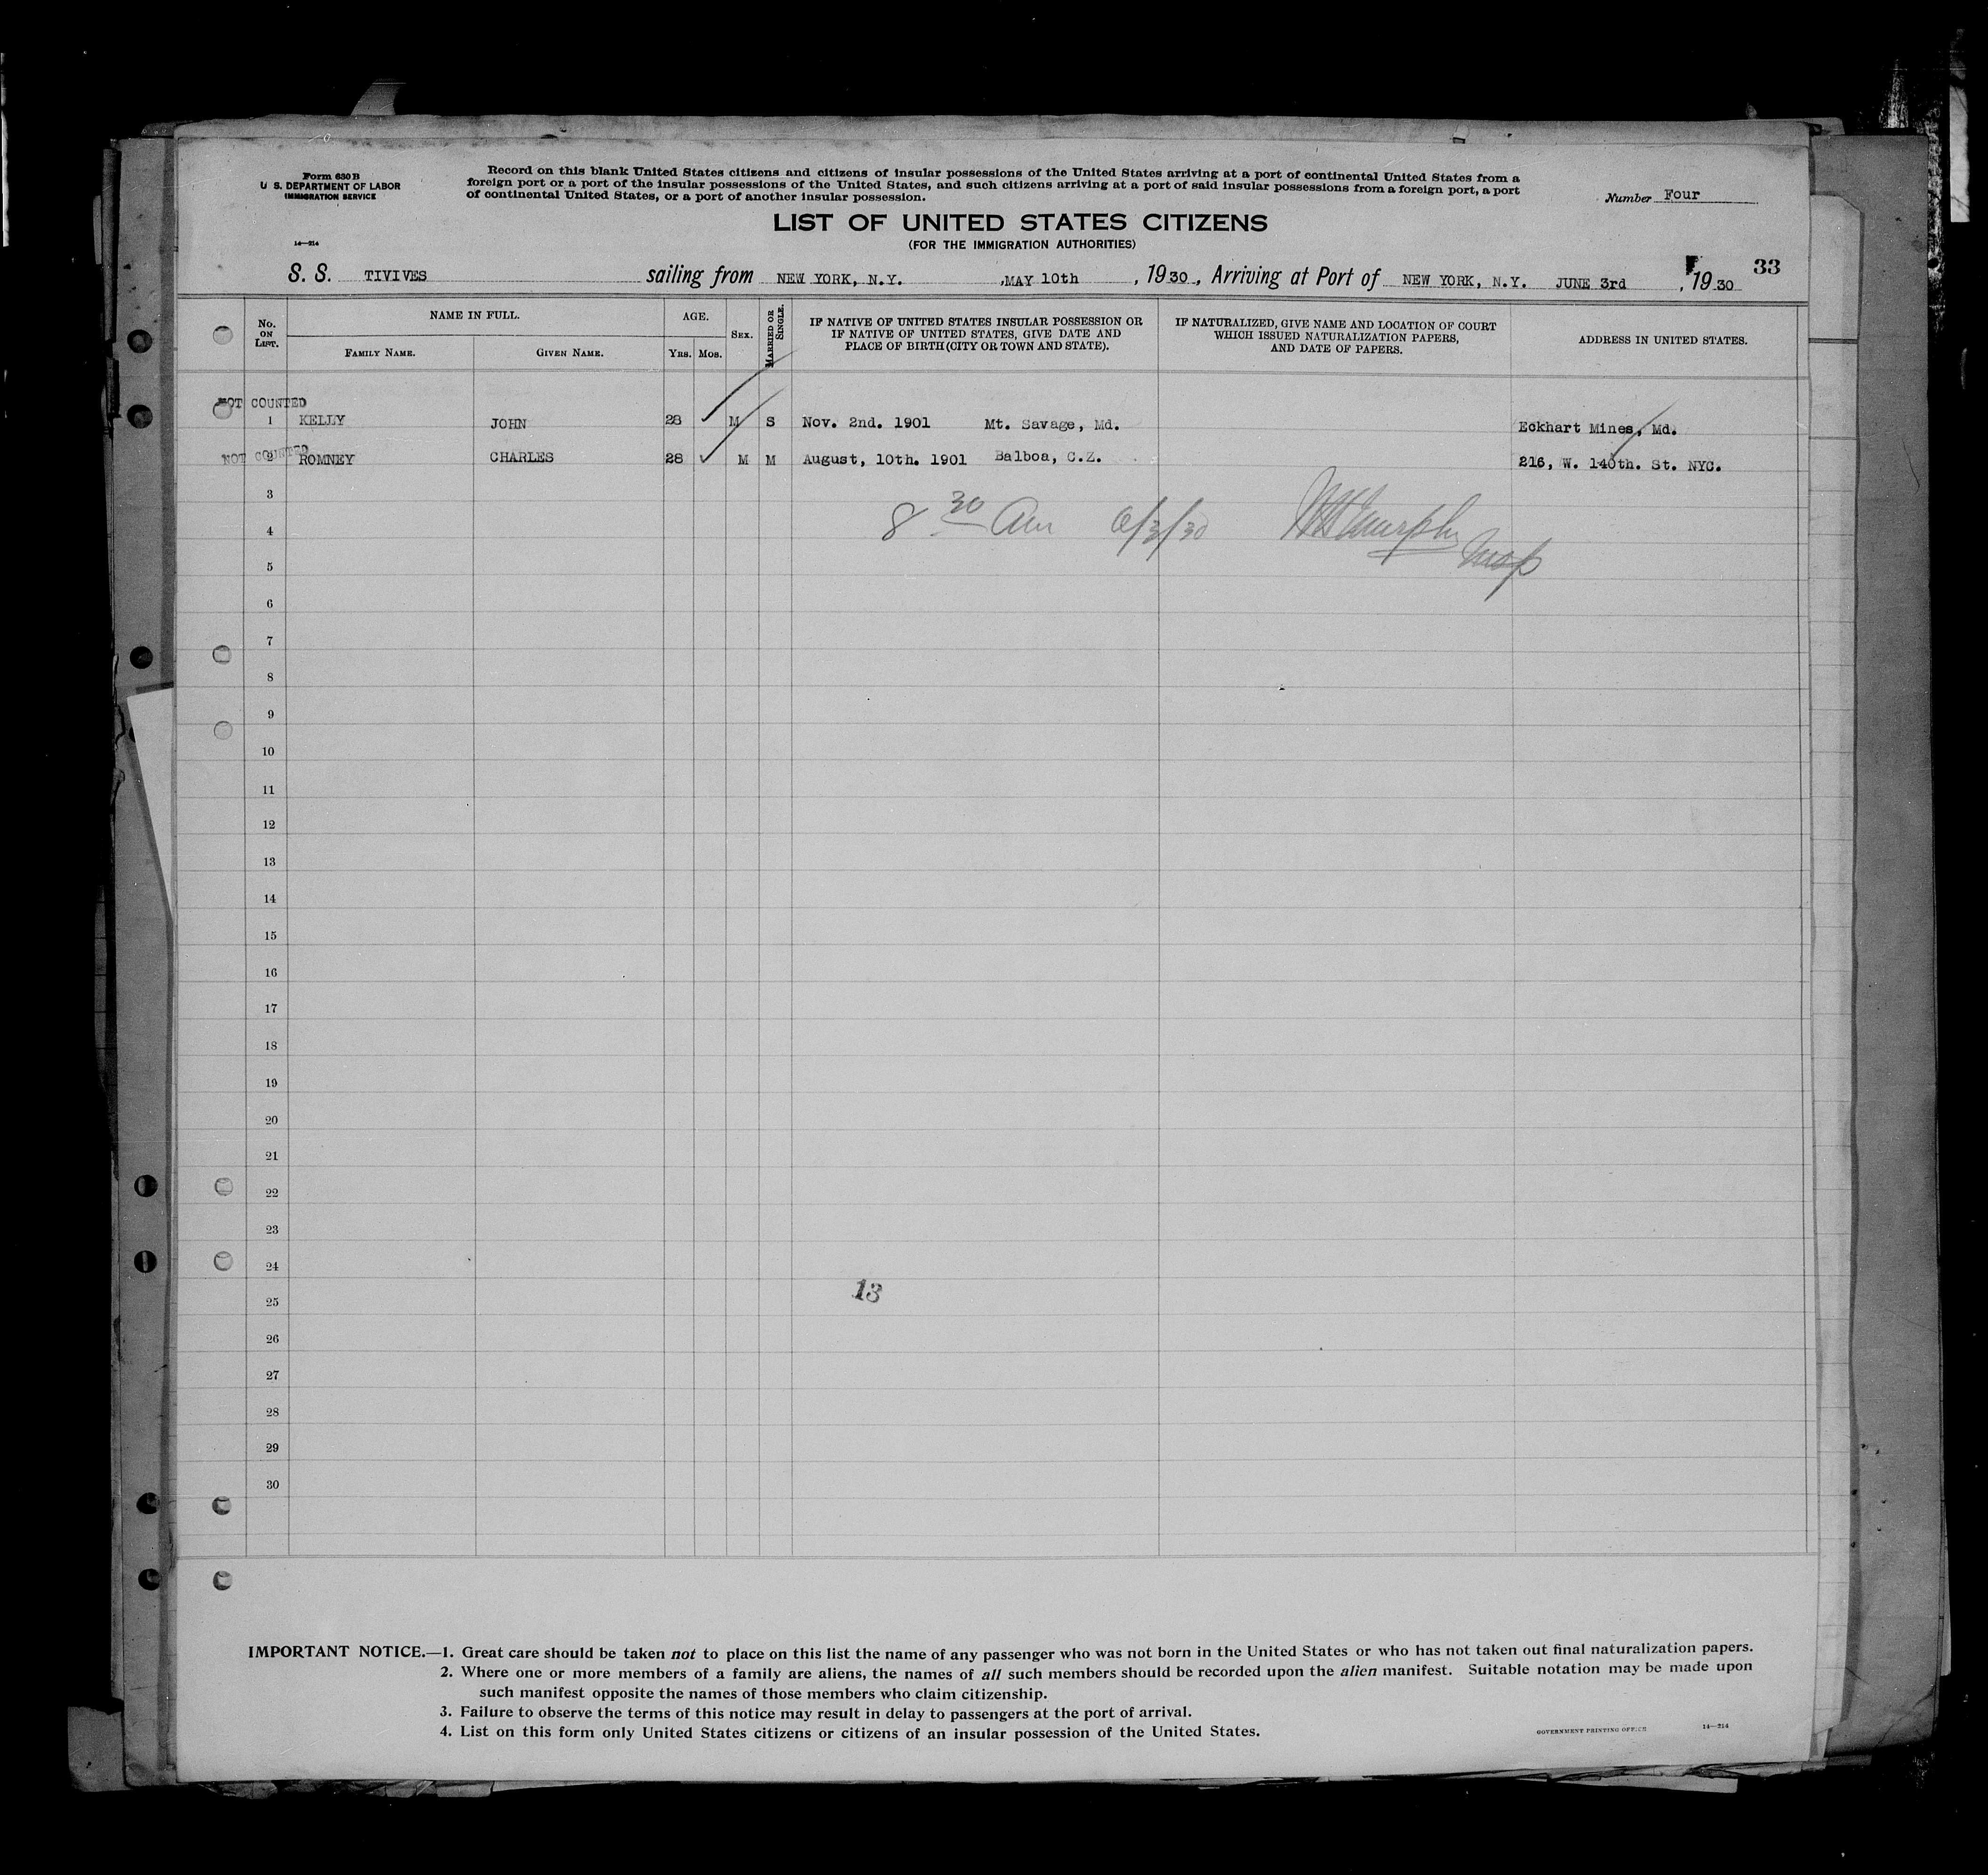 Form 630 B
U. S. DEPARTMENT OF LABOR
IMMIGRATION SERVICE
14—214
Record on this blank United States citizens and citizens of insular possessions of the United States arriving at a port of continental United States from a
foreign port or a port of the insular possessions of the United States, and such citizens arriving at a port of said insular possessions from a foreign port, a port
of continental United States, or a port of another insular possession.
Number Four
LIST OF UNITED STATES CITIZENS
(FOR THE IMMIGRATION AUTHORITIES)
33
S. S. TIVIVES sailing from NEW YORK, N.Y. , MAY 10th , 1930 , Arriving at Port of NEW YORK, N.Y. JUNE 3rd , 1930
No. ON LIST.
NAME IN FULL.
FAMILY NAME. GIVEN NAME.
AGE.
YRS. MOS.
SEX.
MARRIED OR SINGLE.
IF NATIVE OF UNITED STATES INSULAR POSSESSION OR
IF NATIVE OF UNITED STATES, GIVE DATE AND
PLACE OF BIRTH (CITY OR TOWN AND STATE).
IF NATURALIZED, GIVE NAME AND LOCATION OF COURT
WHICH ISSUED NATURALIZATION PAPERS,
AND DATE OF PAPERS.
ADDRESS IN UNITED STATES.
NOT COUNTED
1 KELLY JOHN 28 M S Nov. 2nd. 1901 Mt. Savage, Md. Eckhart Mines, Md.
NOT COUNTED
2 ROMNEY CHARLES 28 M M August, 10th. 1901 Balboa, C.Z. 216, W. 140th. St. NYC.
3
8 30 Am 6/3/30 Murphy
Insp
4
5
6
7
8
9
10
11
12
13
14
15
16
17
18
19
20
21
22
23
24
13
25
26
27
28
29
30
IMPORTANT NOTICE.—1. Great care should be taken not to place on this list the name of any passenger who was not born in the United States or who has not taken out final naturalization papers.
2. Where one or more members of a family are aliens, the names of all such members should be recorded upon the alien manifest. Suitable notation may be made upon
such manifest opposite the names of those members who claim citizenship.
3. Failure to observe the terms of this notice may result in delay to passengers at the port of arrival.
4. List on this form only United States citizens or citizens of an insular possession of the United States.
GOVERNMENT PRINTING OFFICE 14—214